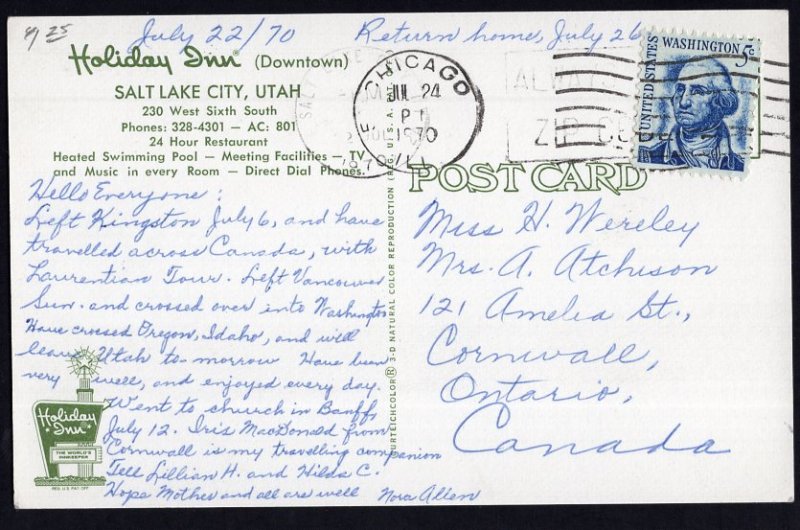 9/25
July 22/70
Return home, July 26
Holiday Inn® (Downtown)
SALT LAKE CITY, UTAH
230 West Sixth South
Phones: 328-4301 — AC: 801
24 Hour Restaurant
Heated Swimming Pool — Meeting Facilities — TV
and Music in every Room — Direct Dial Phones.
CHICAGO
JUL 24
PM
1970
ILL
SALT LAKE
1970
ALWAYS
ZIP CODE
UNITED STATES
WASHINGTON 5c
POST CARD
Hello Everyone:
Left Kingston July 6, and have
travelled across Canada, with
Laurentian Tour. Left Vancouver
Sun. and crossed over into Washington
Have crossed Oregon, Idaho, and will
leave Utah to morrow Have been
very well, and enjoyed every day.
Went to church in Banff,
July 12. Iris MacDonald from
Cornwall is my travelling companion
Tell Lillian H. and Hilda C.
Hope Mother and all are well Nora Allen
Holiday Inn
THE WORLD'S
INNKEEPER
REG. U.S. PAT. OFF.
CURTEICHCOLOR® 3-D NATURAL COLOR REPRODUCTION (REG. U.S.A.
Miss H. Wereley
Mrs. A. Atchison
121 Amelia St.,
Cornwall,
Ontario,
Canada